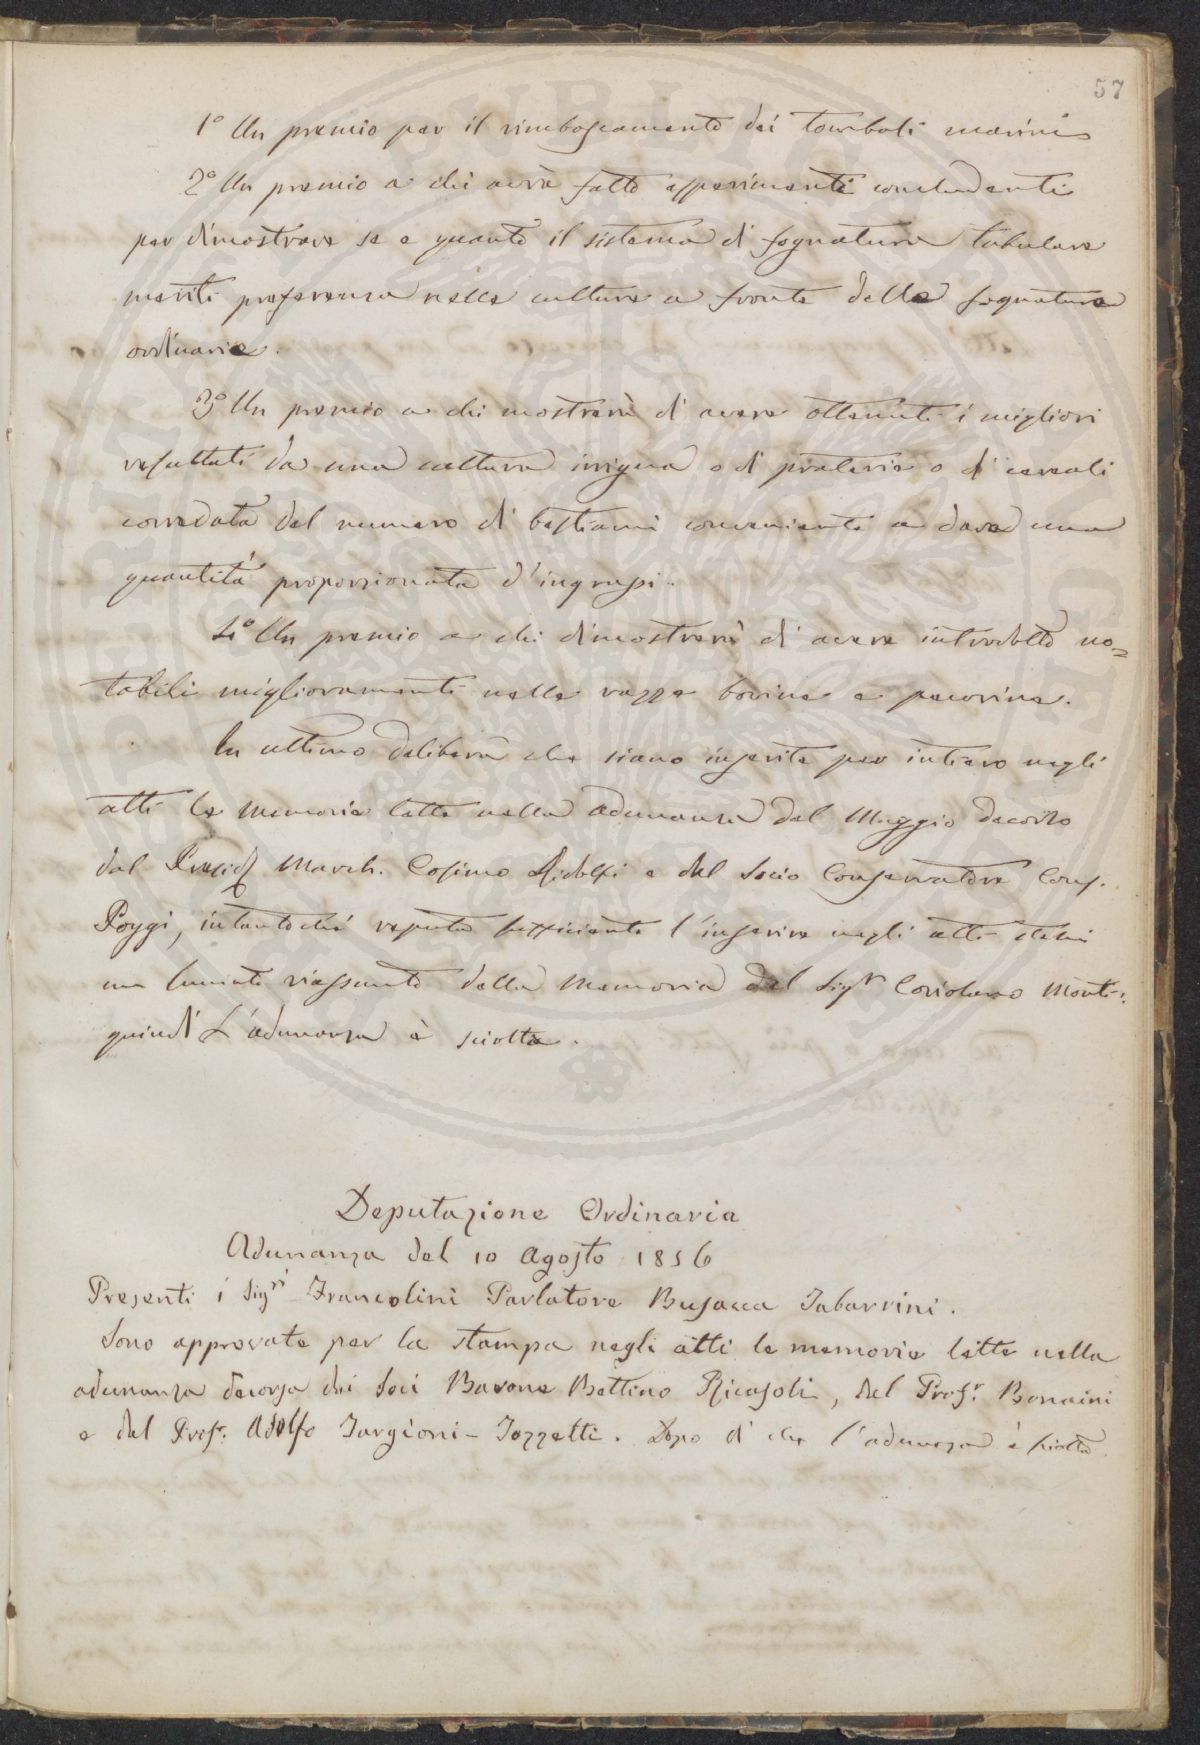 57
1° Un premio per il rimboscamento dei tomboli marini
2° Un premio a chi avrà fatto esperimenti concludenti
per dimostrare se e quanto il sistema di fognatura tubulare
meriti preferenza nelle culture a fronte della fognatura
ordinaria.
3° Un premio a chi mostrerà di avere ottenuti i migliori
resultati da una cultura irrigua o di praterie o di cereali
corredata del numero di bestiami conveniente a dare una
quantità proporzionata d'ingrassi.
4° Un premio a chi dimostrerà di avere introdotto no=
tabili miglioramenti nelle razze bovine e pecorine.
In ultimo deliberà che siano inserite per intiero negli
atti le memorie lette nella adunanza del Maggio decorso
dal March. Cosimo Ridolfi e del Socio Conservatore Cons.
Poggi, intantoché reputa sufficiente l'inserire negli atti stessi
un riassunto della Memoria del Sigr Coriolano Monti.
quindi L'adunanza è sciolta.
Deputazione Ordinaria
Adunanza del 10 Agosto 1856
Presenti i Sigri Francolini Parlatore Busacca Tabarrini.
Sono approvate per la stampa negli atti le memorie lette nella
adunanza decorsa dai Soci Barone Bettino Ricasoli, del Profr. Bonaini
e del Profr. Adolfo Targioni-Tozzetti. Dopo di che l'adunanza è sciolta